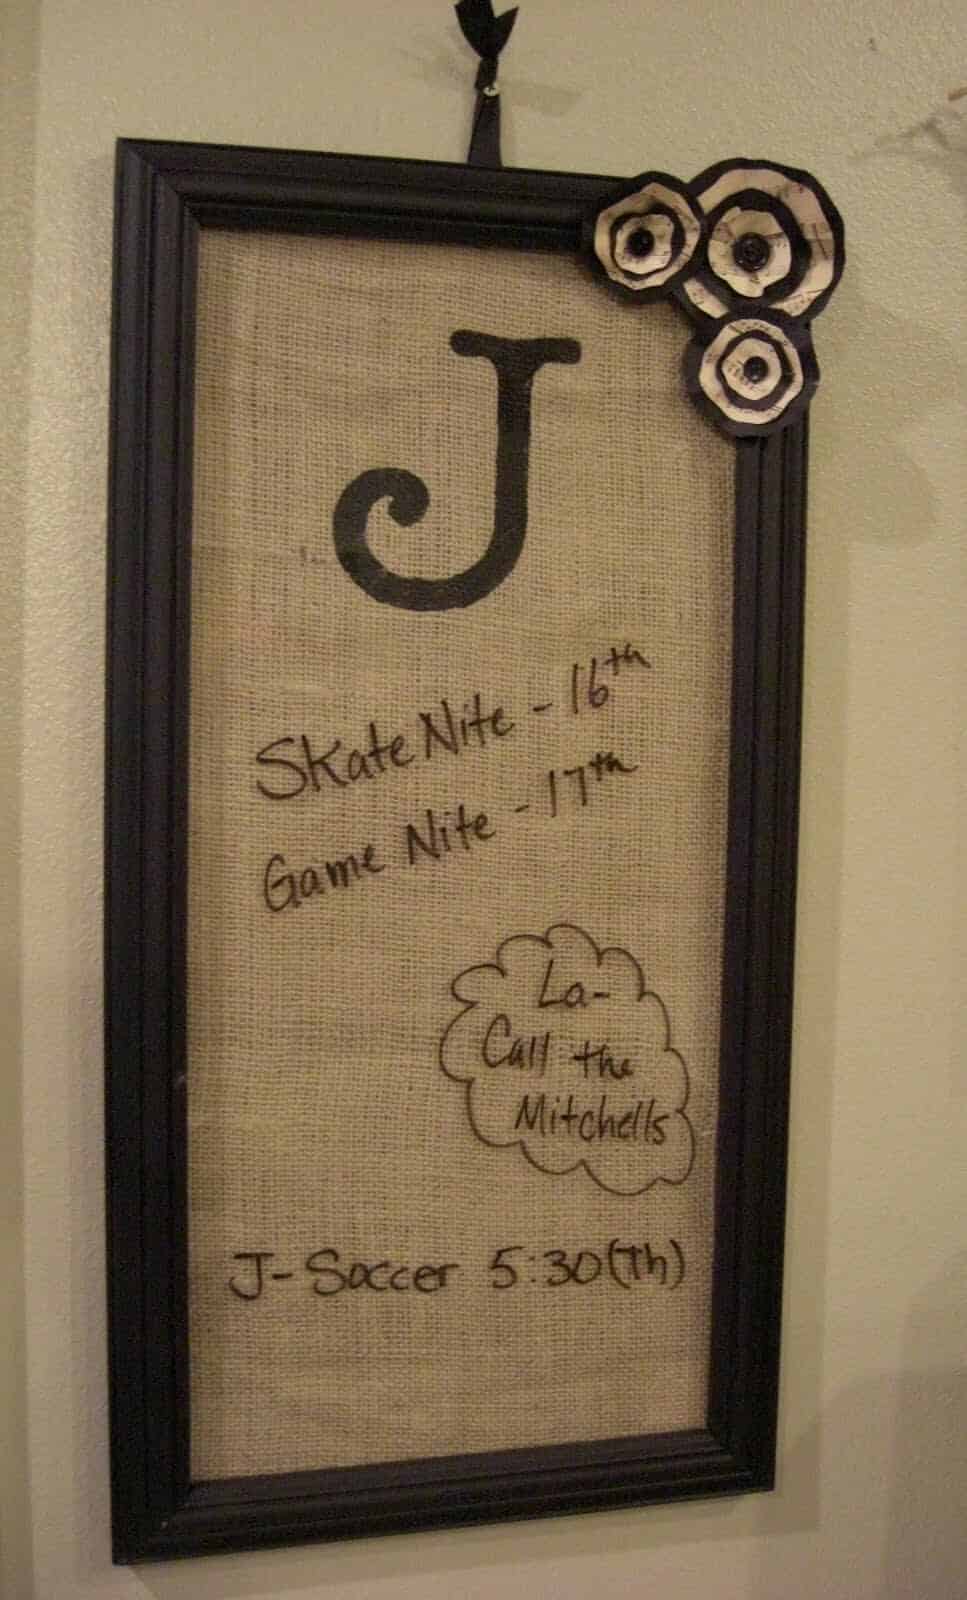 J
Skate Nite - 16th
Game Nite - 17th
La-
Call the
Mitchells
J-Soccer 5:30(Th)